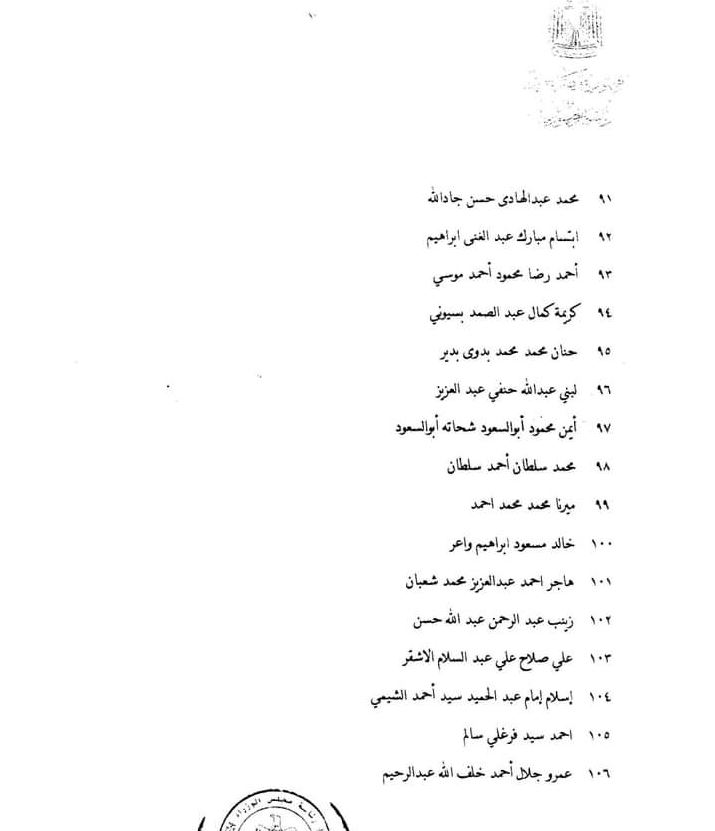 ١٠
٩١ محمد عبدالهادى حسن جادالله
٩٢ ابتسام مبارك عبد الغنى ابراهيم
٩٣ أحمد رضا محمود أحمد موسي
٩٤ كريمة كمال عبد الصمد بسيوني
٩٥ حنان محمد محمد بدوى بدير
٩٦ لبني عبدالله حنفي عبد العزيز
٩٧ أيمن محمود أبوالسعود شحاته أبوالسعود
٩٨ محمد سلطان أحمد سلطان
٩٩ ميرنا محمد محمد احمد
١٠٠ خالد مسعود ابراهيم واعر
١٠١ هاجر احمد عبدالعزيز محمد شعبان
١٠٢ زينب عبد الرحمن عبد الله حسن
١٠٣ علي صلاح علي عبد السلام الاشقر
١٠٤ إسلام إمام عبد الحميد سيد أحمد الشيمي
١٠٥ احمد سيد فرغلي سالم
١٠٦ عمرو جلال أحمد خلف الله عبدالرحيم
رئاسة مجلس الوزراء